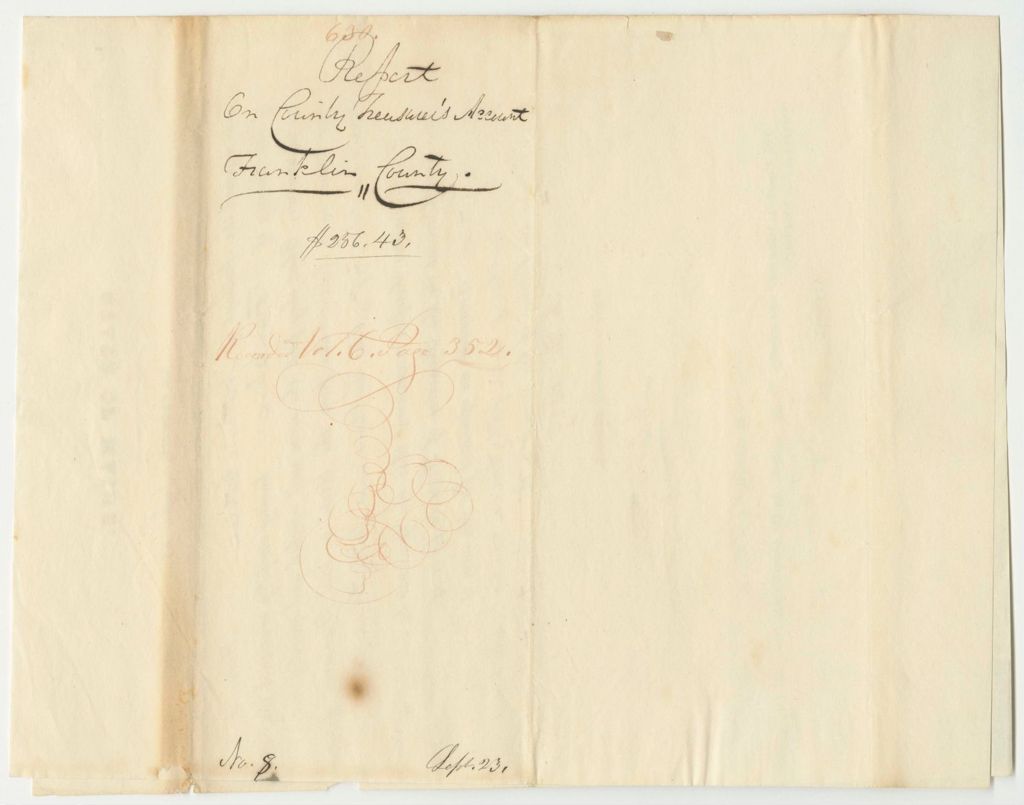 630.
Report
On County Treasurer's Account
Franklin County.
$256.43.
Recorded Vol. 6. Page 352.
No. 8.
Sept. 23,